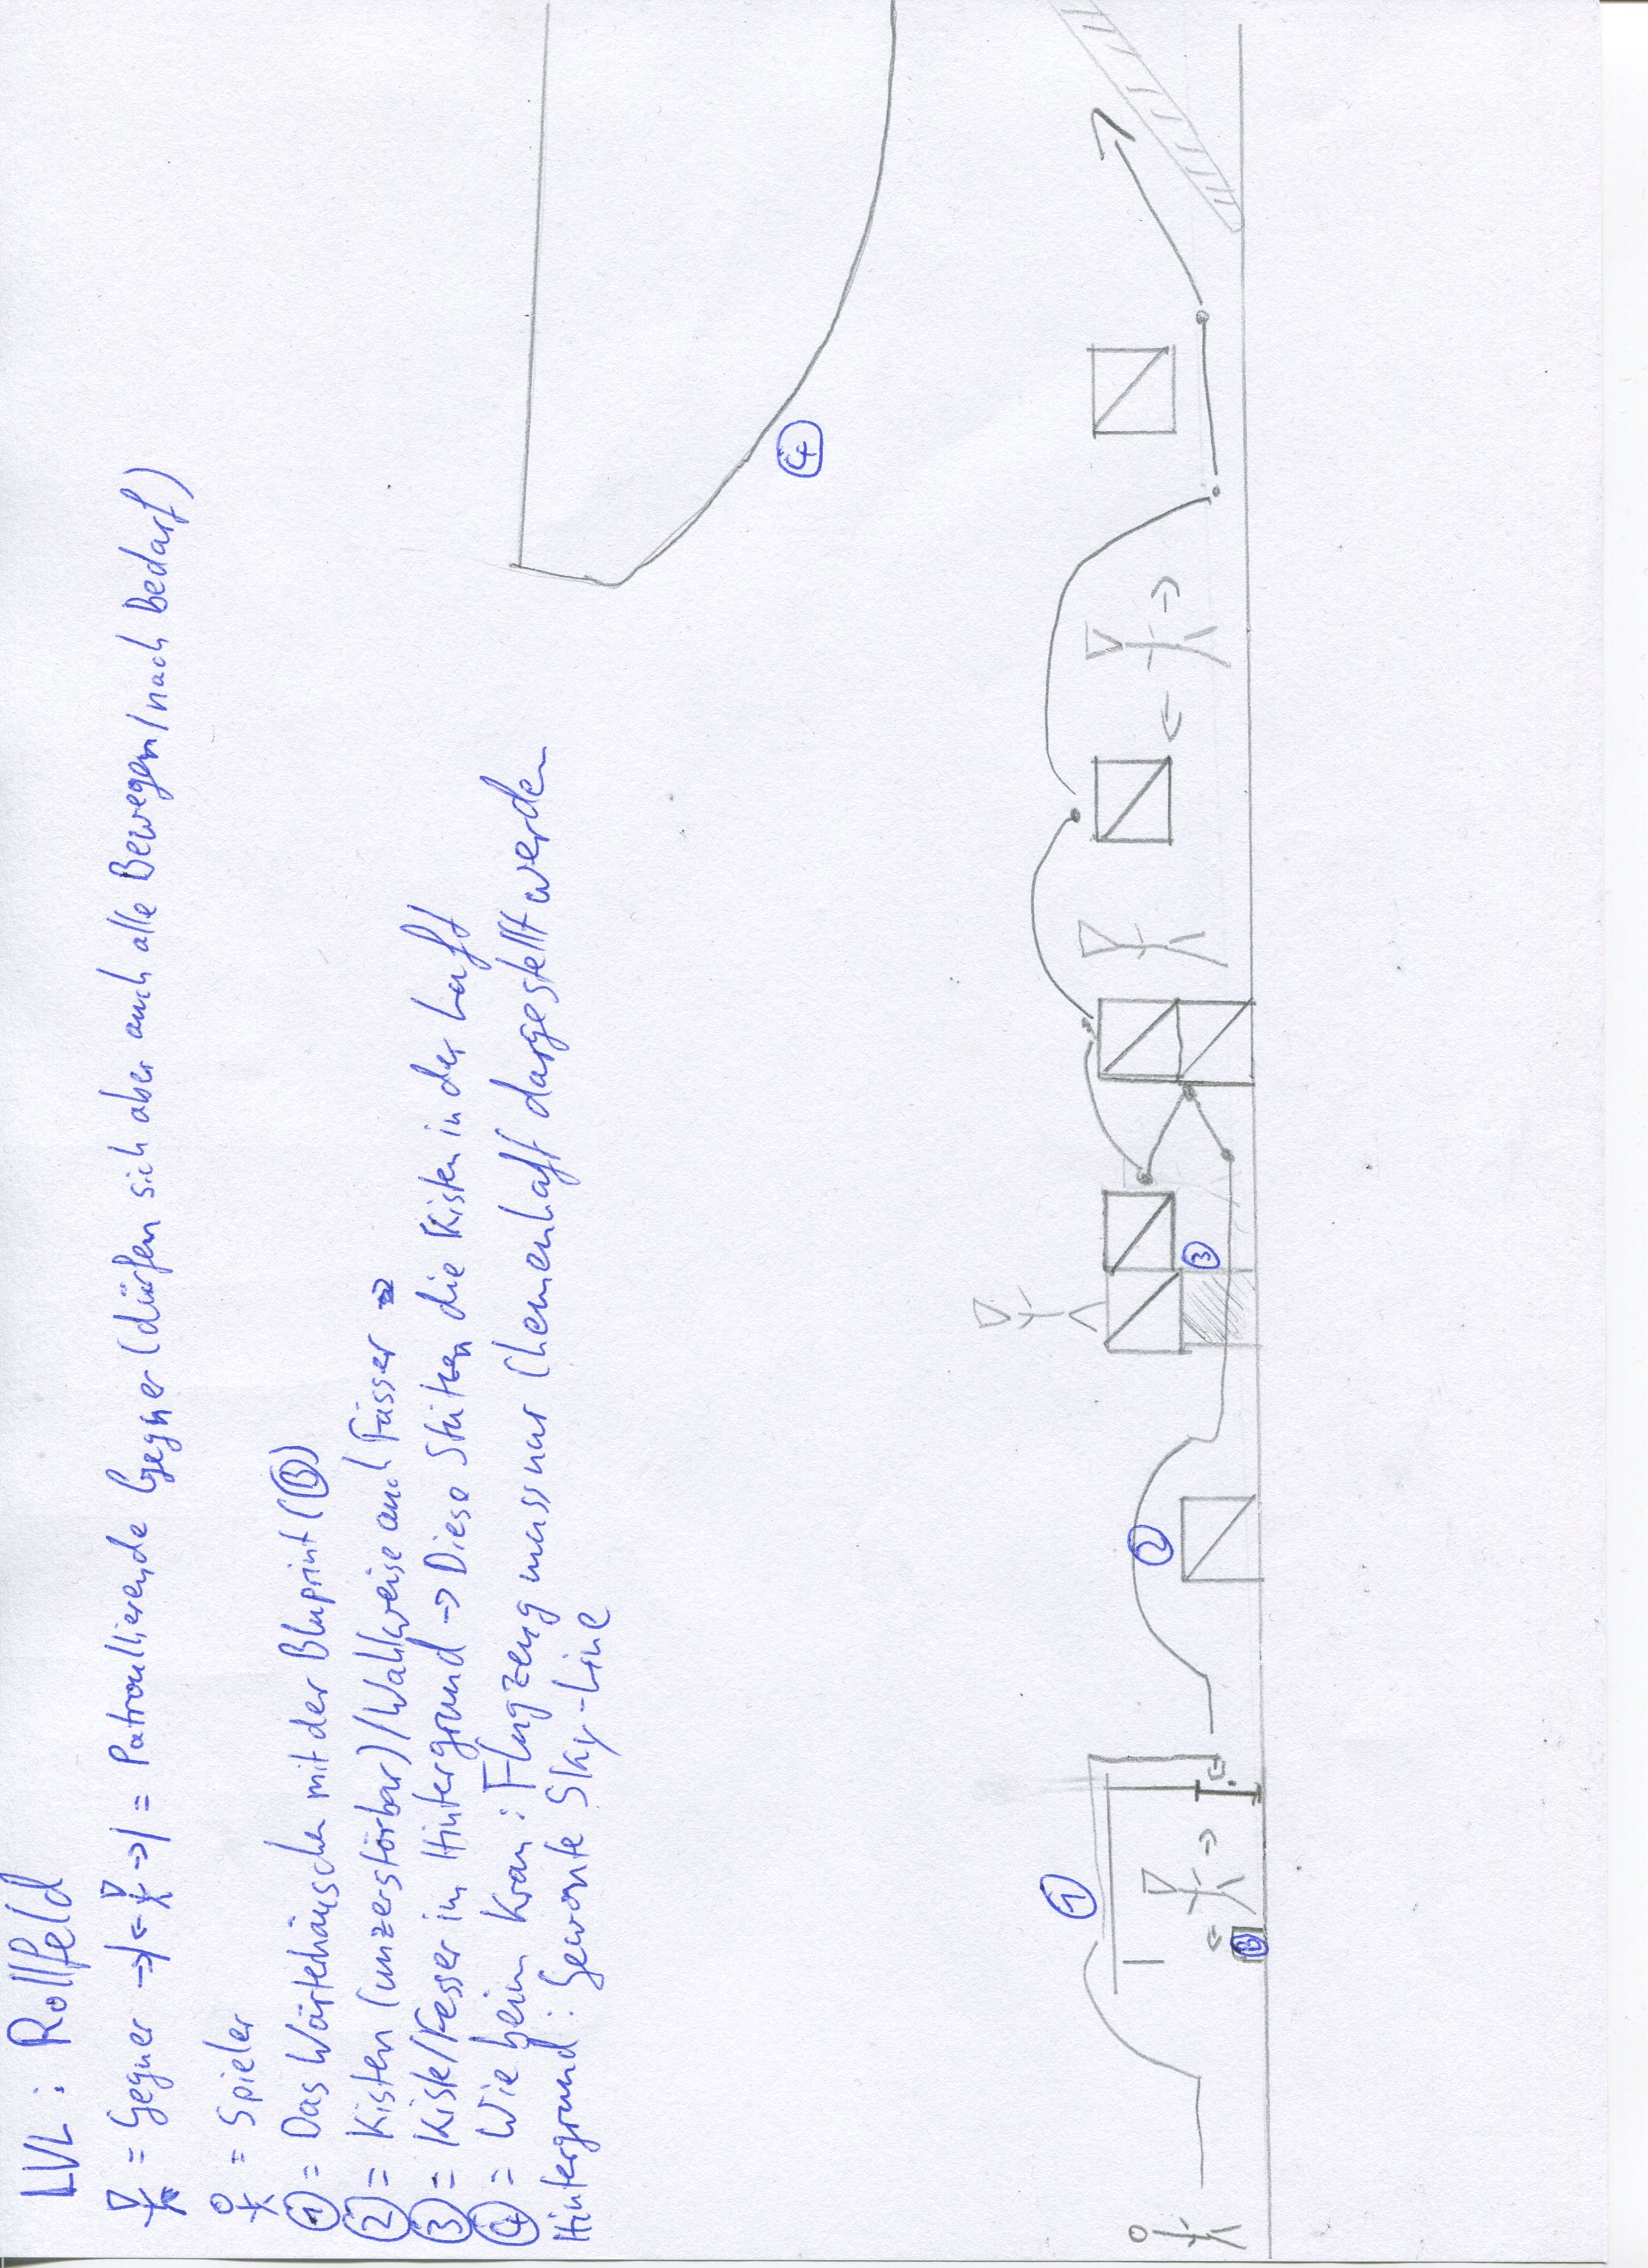 LVL : Rollfeld
= Gegner →|← →| = Patroullierende Gegner (dürfen sich aber auch alle Bewegen/nach Bedarf)
= Spieler
① = Das Wärterhäuschen mit der Bluprint (Ⓑ)
② = Kisten (unzerstörbar)/Wahlweise auch Fässer →
③ = Kiste/Fesser im Hintergrund → Diese Stützen die Kisten in der Luft
④ = Wie beim Kran : Flugzeug muss nur Chemenhaft dargestellt werden
Hintergrund : Gewonte Sky-Line
④
①
②
③
Ⓑ